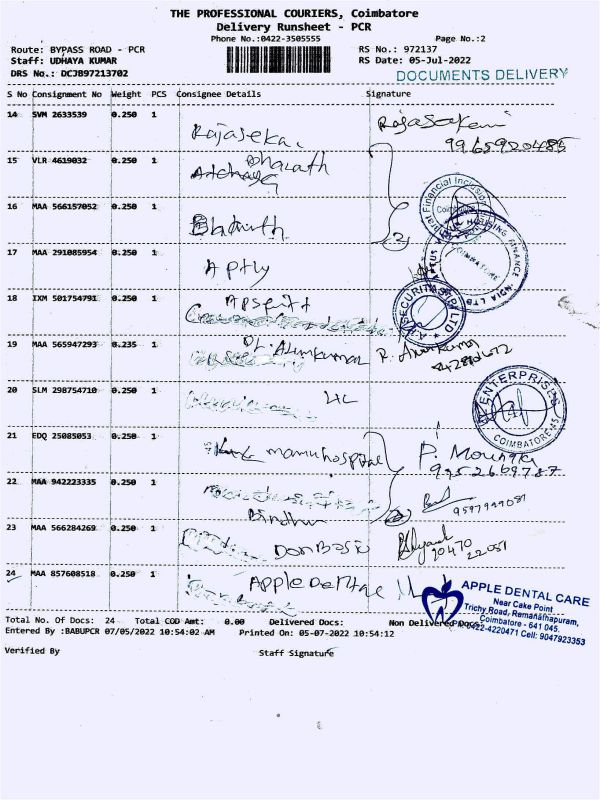 THE PROFESSIONAL COURIERS, Coimbatore
Delivery Runsheet - PCR
Phone No.:0422-3505555 Page No.:2
Route: BYPASS ROAD - PCR RS No.: 972137
Staff: UDHAYA KUMAR RS Date: 05-Jul-2022
DRS No.: DCJ897213702 DOCUMENTS DELIVERY
S No Consignment No Weight PCS Consignee Details Signature
14 SVM 2633539 0.250 1
Rajaseka. 9965920485
15 VLR 4619032 0.250 1
Bharath
16 MAA 566157052 0.250 1
Bharath
17 MAA 291085954 0.250 1
18 IXM 501754791 0.250 1
19 MAA 565947293 0.235 1 Dr. Arunkumar R. Arunkumar
20 SLM 298754710 0.250 1
ENTERPRISES
COIMBATORE-45
21 EDQ 25085053 0.250 1 hospital P. Mounika
22 MAA 942223335 0.250 1
Bindhu
23 MAA 566284269 0.250 1 DonBasic
24 MAA 857608518 0.250 1 Apple Dental
APPLE DENTAL CARE
Near Cake Point
Trichy Road, Ramanathapuram,
Coimbatore - 641 045.
0422-4220471 Cell: 9047923353
Total No. Of Docs: 24 Total COD Amt: 0.00 Delivered Docs: Non Delivered Docs:
Entered By :BABUPCR 07/05/2022 10:54:02 AM Printed On: 05-07-2022 10:54:12
Verified By Staff Signature